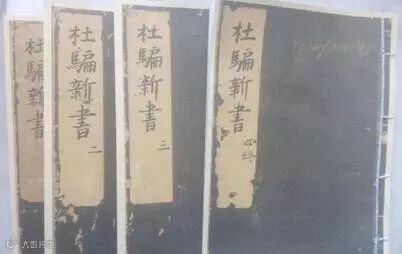 杜騙新書
杜騙新書 二
杜騙新書 三
杜騙新書 四終